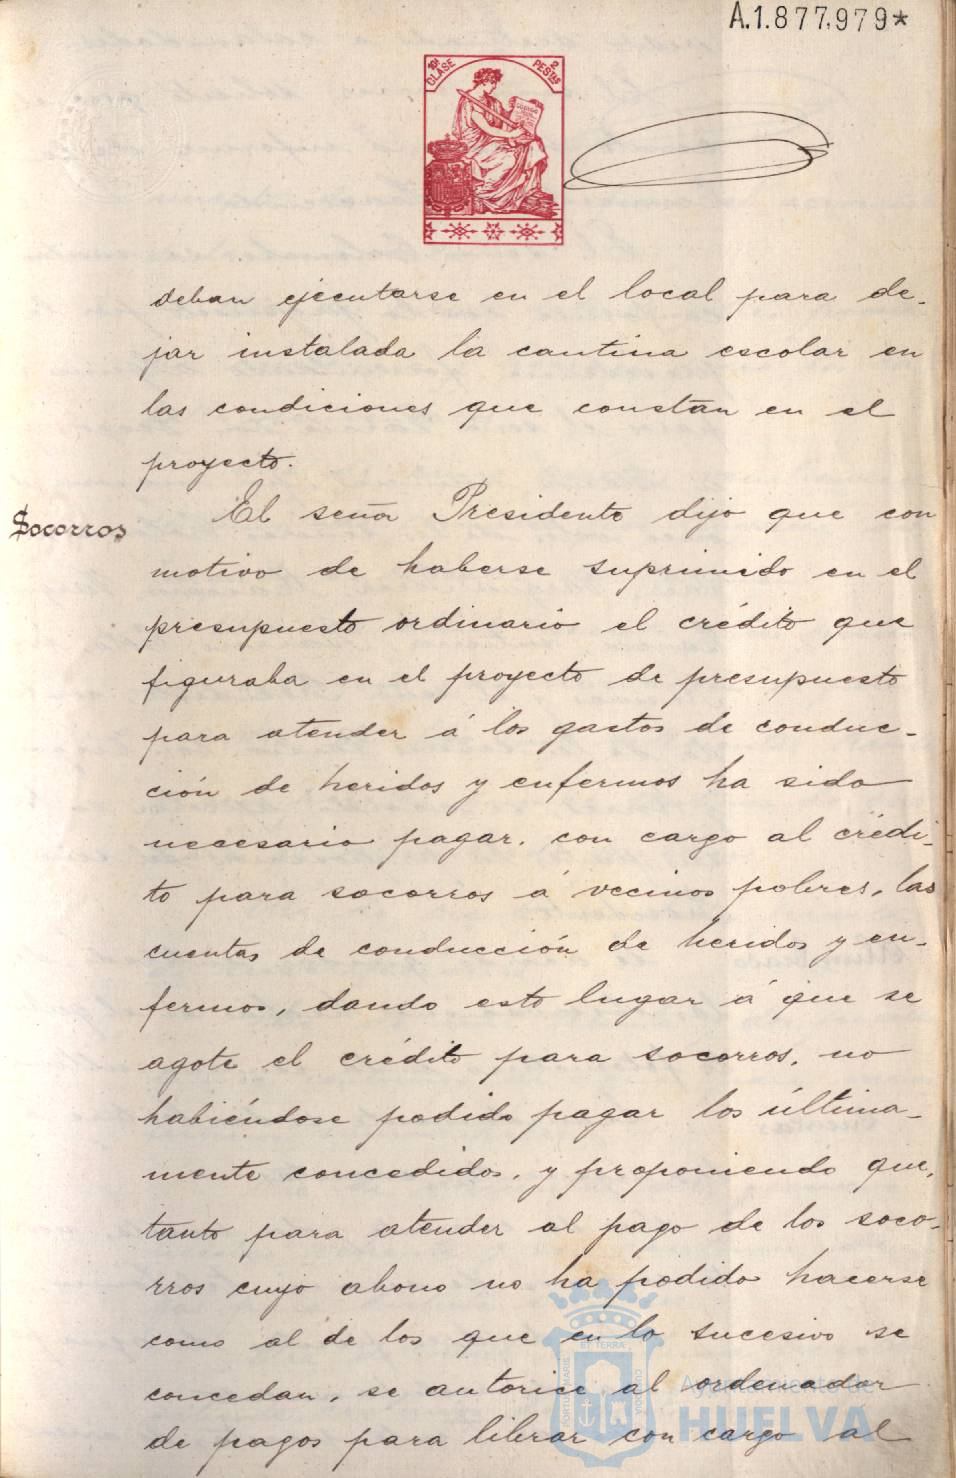 A.1.877,979*
10ª CLASE 2 PESTAS
deban ejecutarse en el local para de-
jar instalada la cantina escolar en
las condiciones que constan en el
proyecto.
Socorros
El señor Presidente dijo que con
motivo de haberse suprimido en el
presupuesto ordinario el crédito que
figuraba en el proyecto de presupuesto
para atender á los gastos de conduc-
ción de heridos y enfermos ha sido
necesario pagar, con cargo al crédi-
to para socorros á vecinos pobres, las
cuentas de conducción de heridos y en-
fermos, dando esto lugar á que se
agote el crédito para socorros, no
habiéndose podido pagar los última-
mente concedidos, y proponiendo que,
tanto para atender al pago de los soco-
rros cuyo abono no ha podido hacerse
como al de los que en lo sucesivo se
concedan, se autorice al ordenador
de pagos para librar con cargo al
PORTUS MARIS ET TERRÆ CUSTODIA
Ayuntamiento de
HUELVA